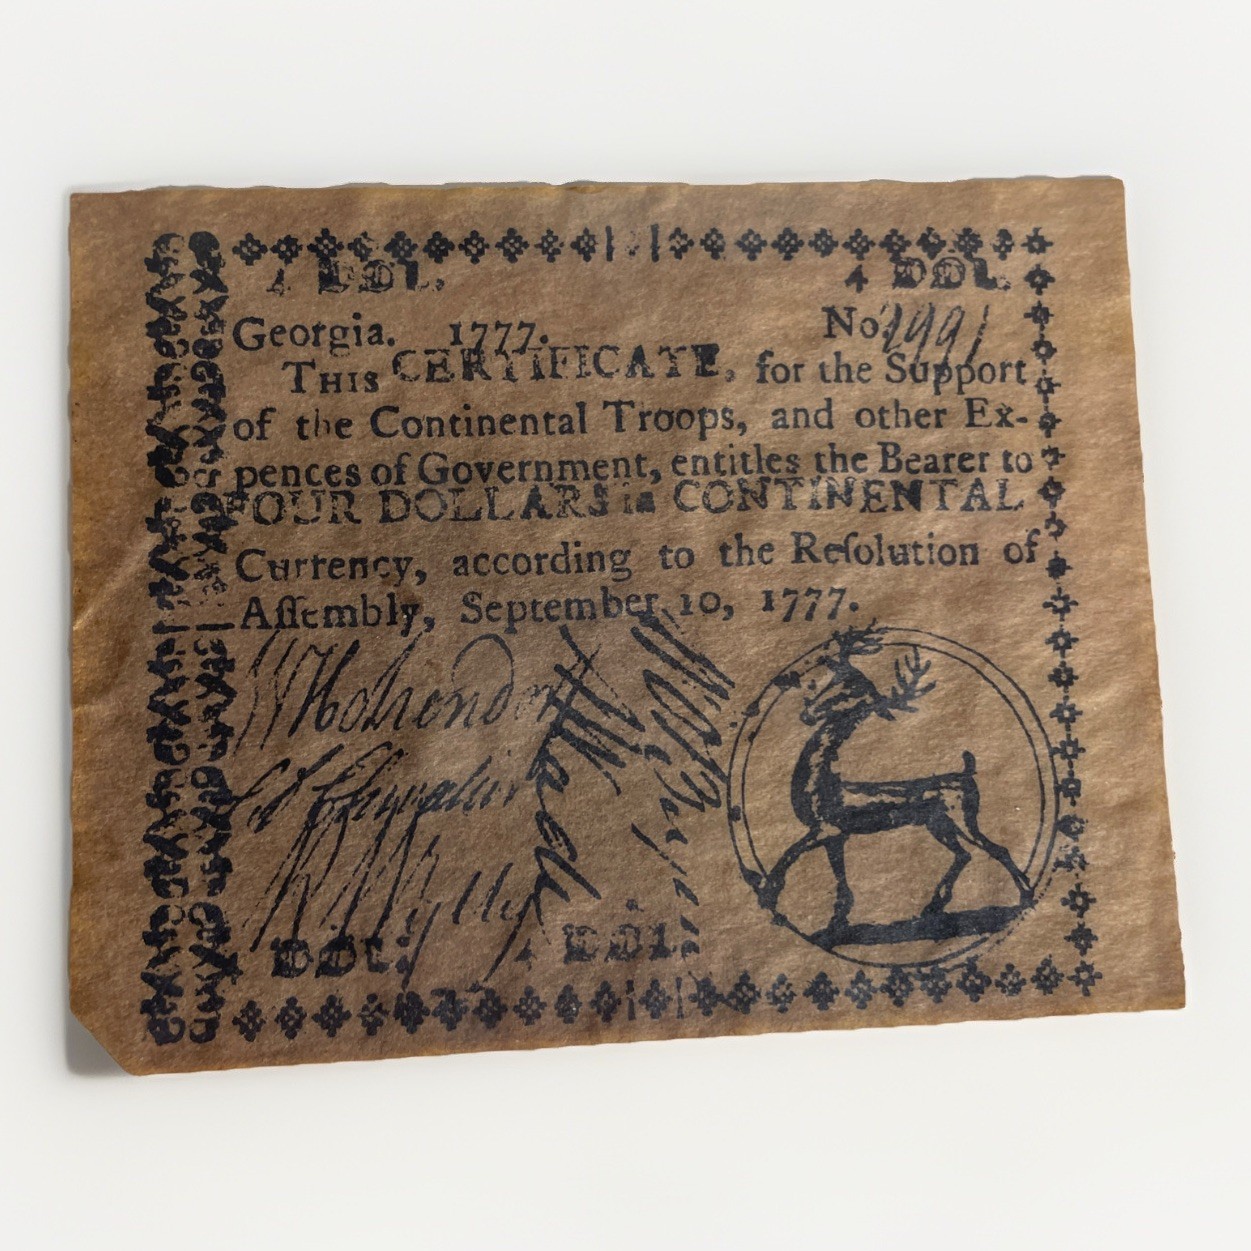 4 DOL. 4 DOL.
Georgia. 1777. No 2991
THIS CERTIFICATE, for the Support
of the Continental Troops, and other Ex-
pences of Government, entitles the Bearer to
FOUR DOLLARS in CONTINENTAL
Currency, according to the Reſolution of
Aſſembly, September 10, 1777.
DOL. DOL.